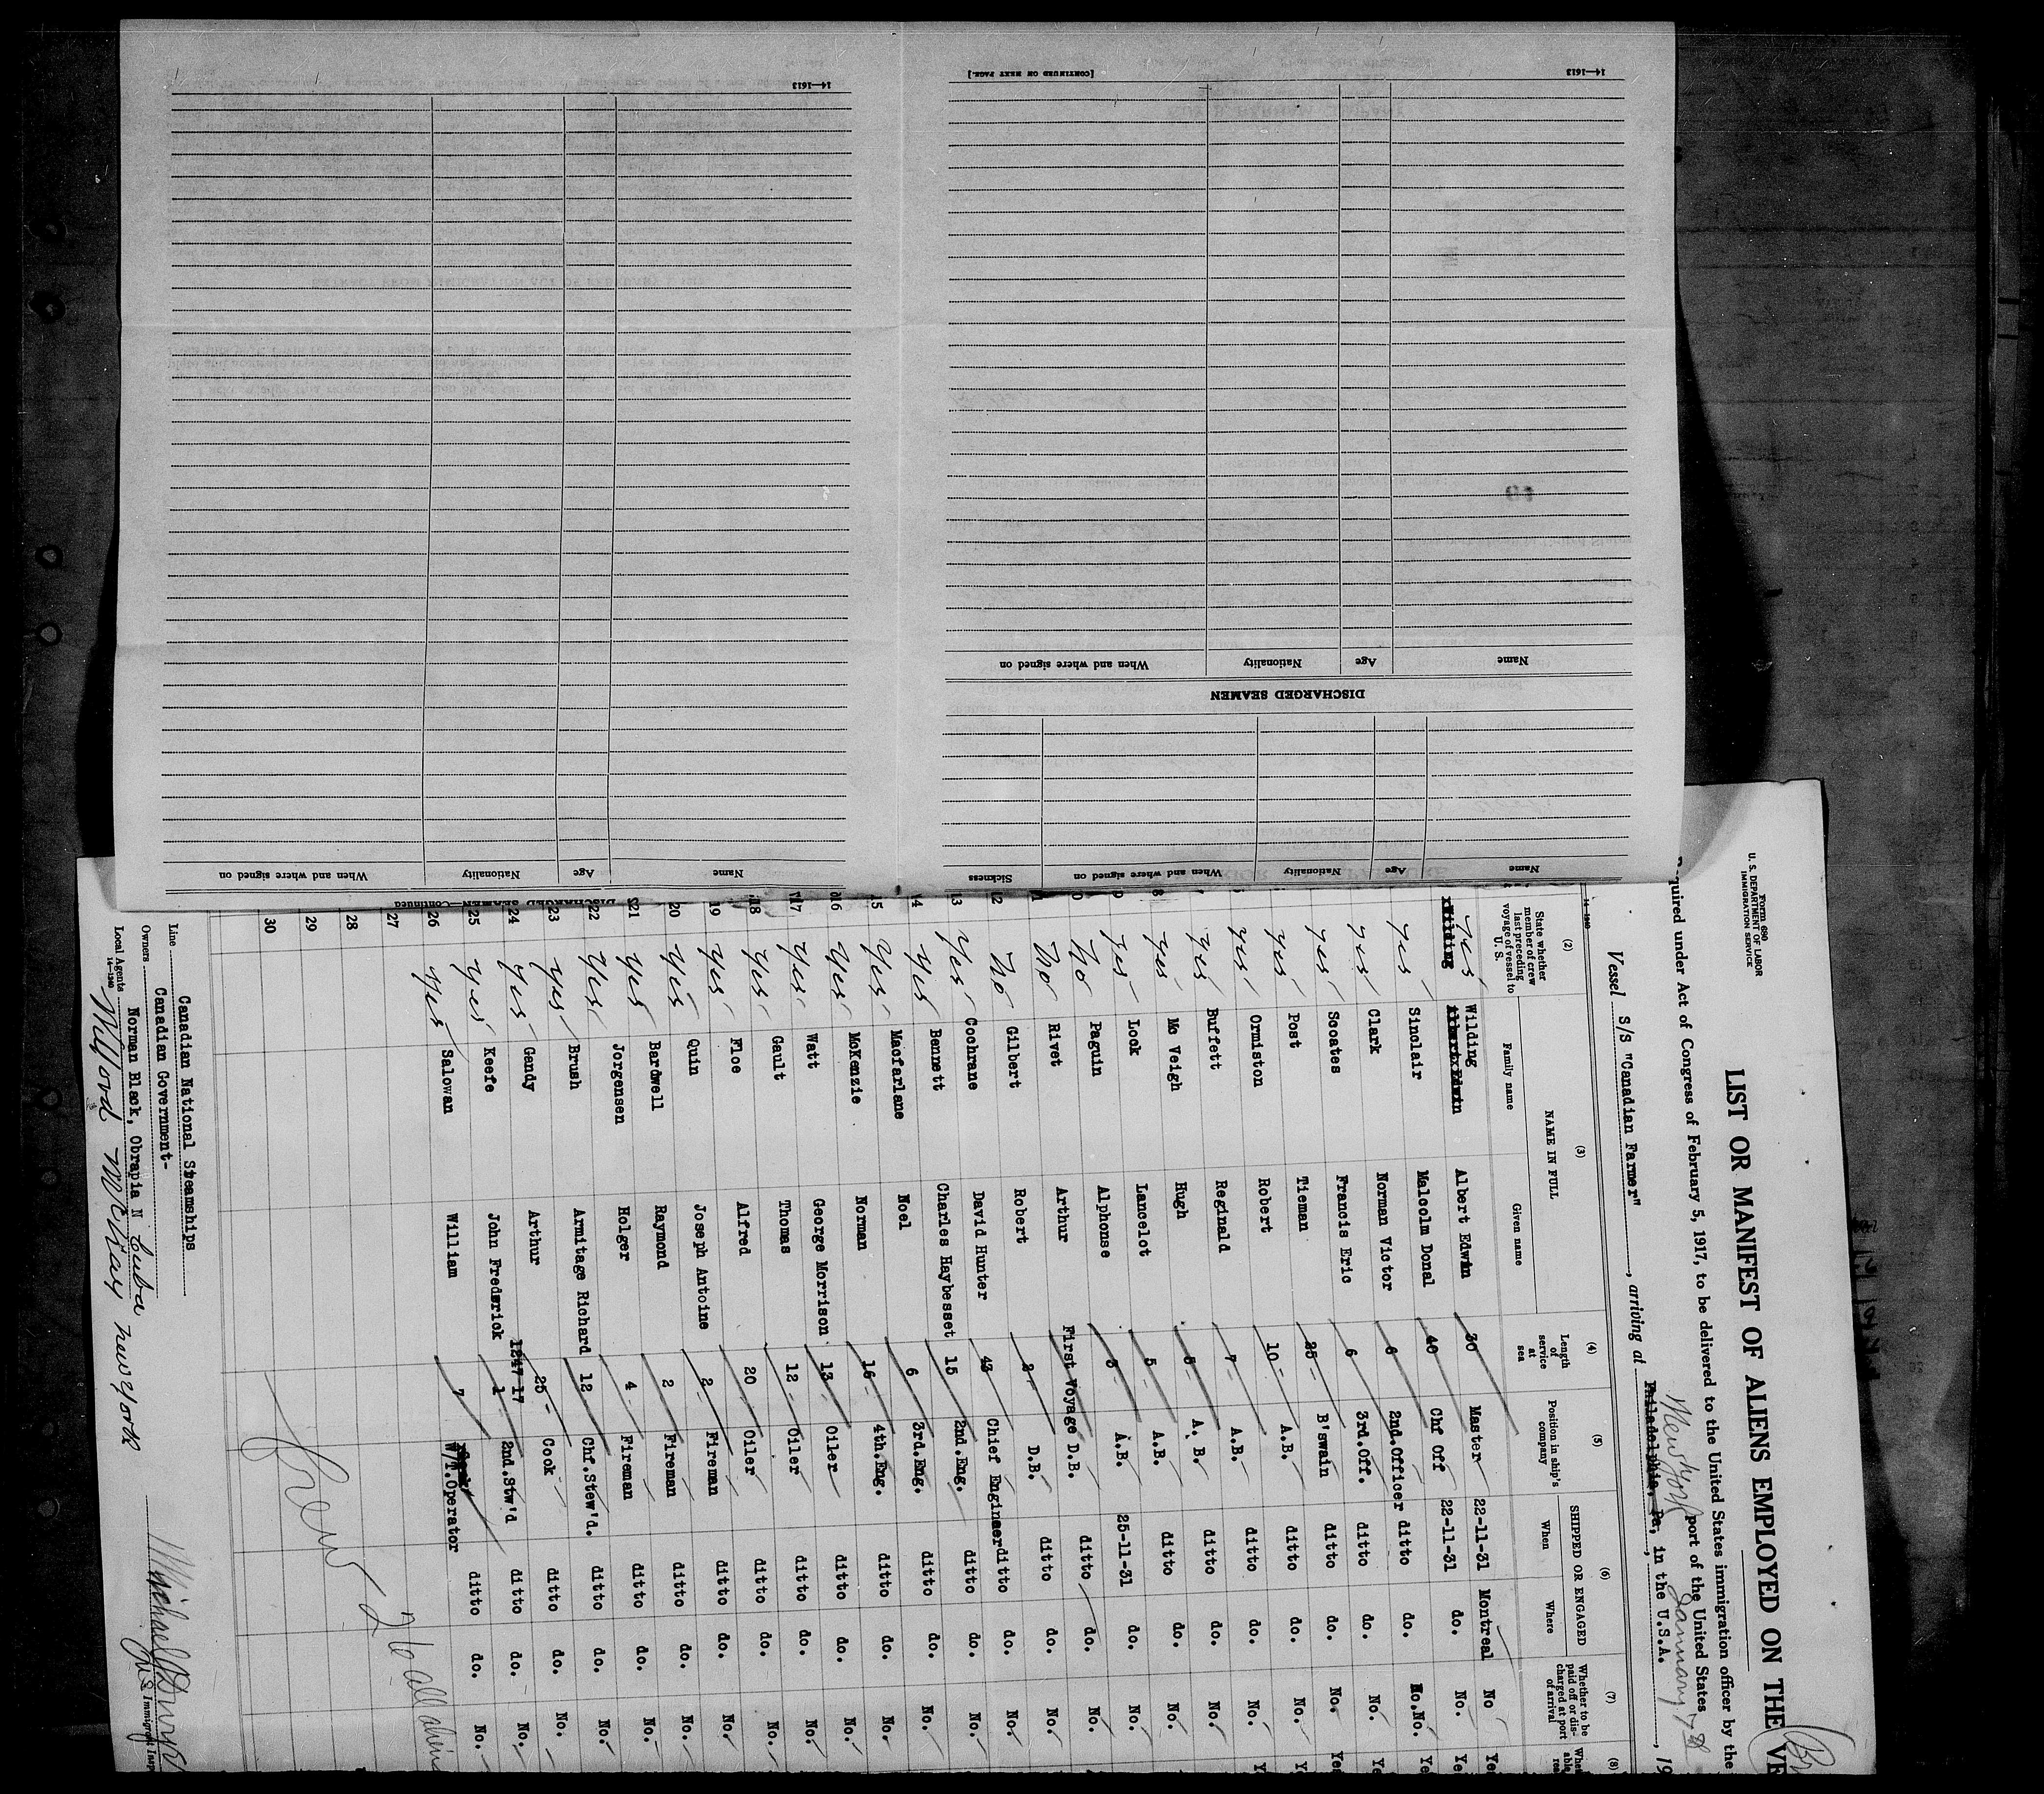 14—1613
[CONTINUED ON NEXT PAGE.]
14—1613
Name
Age
Nationality
When and where signed on
DISCHARGED SEAMEN
Name
Age
Nationality
When and where signed on
Sickness
Name
Age
Nationality
When and where signed on
DISCHARGED SEAMEN—Continued
Form 680
U. S. DEPARTMENT OF LABOR
IMMIGRATION SERVICE
LIST OR MANIFEST OF ALIENS EMPLOYED ON THE
quired under Act of Congress of February 5, 1917, to be delivered to the United States immigration officer by the
port of the United States
Vessel S/S "Canadian Farmer", arriving at Philadelphia, Pa, in the U.S.A. New York January 7th, 19
14—1240
(2) State whether member of crew last preceding voyage of vessel to U. S.
(3) NAME IN FULL
Family name Given name
(4) Length of service at sea
(5) Position in ship's company
(6) SHIPPED OR ENGAGED
When Where
(7) Whether to be paid off or discharged at port of arrival
(8)
yes Wilding Albert Edwin 30 Master 22-11-31 Montreal No
yes Sinclair Malcolm Donal 40 Chf Off 22-11-31 do. No.
yes Clark Norman Victor 6 2nd.Officer ditto do. No.No.
yes Scoates Francis Eric 6 3rd.Off. ditto do. No.
yes Post Tieman 25 B'swain ditto do. No.
yes Ormiston Robert 10 A.B. ditto do. No.
yes Buffett Reginald 7 A.B. ditto do. No.
8 yes Mc Veigh Hugh A. B. ditto do. No.
9 yes Look Lancelot 5 A.B. ditto do. No.
10 No Paguin Alphonse 3 A.B. 25-11-31 do. No.
11 No Rivet Arthur First Voyage D.B. ditto do. No.
12 No Gilbert Robert 2 D.B. ditto do. No.
13 yes Cochrane David Hunter 43 Chief Engineer ditto do. No.
14 yes Bennett Charles Haybesset 15 2nd.Eng. ditto do. No.
15 yes Macfarlane Noel 6 3rd.Eng. ditto do. No.
16 yes McKenzie Norman 16 4th.Eng. ditto do. No.
17 yes Watt George Morrison 13 Oiler ditto do. No.
18 yes Gault Thomas 12 Oiler ditto do. No.
19 yes Floe Alfred 20 Oiler ditto do. No.
20 yes Quin Joseph Antoine 2 Fireman ditto do. No.
21 yes Bardwell Raymond 2 Fireman ditto do. No.
22 yes Jorgensen Holger 4 Fireman ditto do. No.
23 yes Brush Armitage Richard 12 Chf.Stew'd. ditto do. No.
24 yes Gandy Arthur 25 Cook ditto do. No.
25 yes Keefe John Frederick 1 2nd.Stw'd ditto do. No.
26 yes Salowan William 7 W/T.Operator ditto do. No.
27
28
29
30
Crew 26 all aliens
Line Canadian National Steamships
Owners Canadian Government-
Local Agents Norman Black, Obrapia N Cuba
14—1240
New York
Immigrant Insp